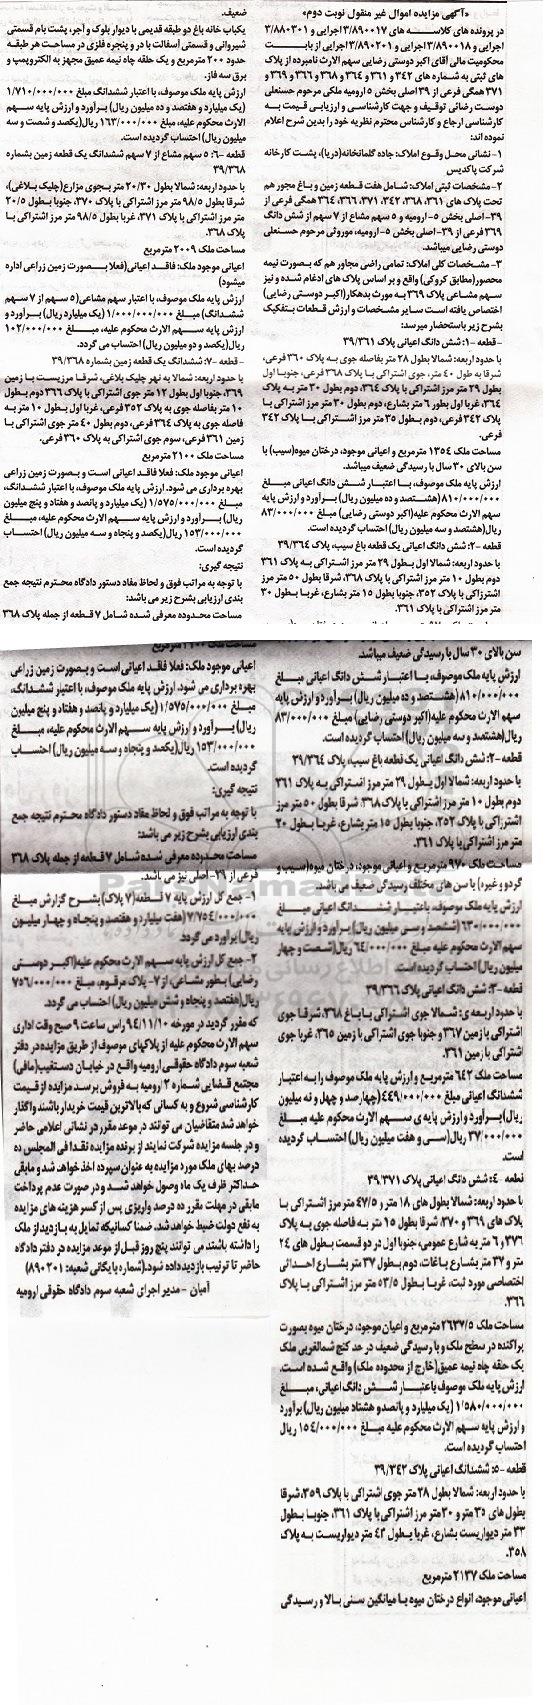 «آگهی مزایده اموال غیر منقول نوبت دوم»
در پرونده های کلاســـه های ۳/۸۹۰۰۱۷ اجرایی و ۳/۸۸۰۳۰۱
اجرایی و ۳/۸۹۰۰۱۸ اجرایی و ۳/۸۹۰۲۰۱ اجرایی از بابت
محکومیت مالی آقای اکبر دوستی رضایی سهم الارث نامبرده از پلاک
های ثبتی به شماره های ۳۴۲ و ۳۶۱ و ۳۶۴ و ۳۶۸ و ۳۶۶ و ۳۶۹ و
۳۷۱ همگی فرعی از ۳۹ اصلی بخش ۵ ارومیه ملکی مرحوم حسنعلی
دوست رضائی توقیف و جهت کارشناسی و ارزیابی قیمت به
کارشناسی ارجاع و کارشناس محترم نظریه خود را بدین شرح اعلام
نموده اند:
۱- نشانی محل وقوع املاک: جاده گلمانخانه(دریا)، پشت کارخانه
شرکت پاکدیس
۲- مشخصات ثبتی املاک: شامل هفت قطعه زمین و باغ مجور هم
تحت پلاک های ۳۶۱، ۳۶۸، ۳۴۲، ۳۷۱، ۳۶۶، ۳۶۴ همگی فرعی از
۳۹-اصلی بخش ۵-ارومیه و ۵ سهم مشاع از ۷ سهم از شش دانگ
۳۶۹ فرعی از ۳۹-اصلی بخش ۵-ارومیه، موروثی مرحوم حسنعلی
دوستی رضایی میباشد.
۳- مشخصات کلی املاک: تمامی راضی مجاور هم که بصورت نیمه
محصور(مطابق کروکی) واقع و بر اساس پلاک های ادغام شده و نیز
سهم مشاعی پلاک ۳۶۹ به مورث بدهکار(اکبر دوستی رضایی)
اختصاص یافته است سایر مشخصات و ارزش قطعات بتفکیک
بشرح زیر باستحضار میرسد:
قطعه -۱: شش دانگ اعیانی پلاک ۳۹/۳۶۱
با حدود اربعه: شمالا بطول ۲۸ متر بفاصله جوی به پلاک ۳۶۰ فرعی،
شرقا به طول ۴۰ متر، جوی اشتراکی با پلاک ۳۶۸ فرعی، جنوبا اول
بطول ۲۹ متر مرز اشتراکی با پلاک ۳۶۴، دوم بطول ۳۰ متر به پلاک
۳۶۴، غربا اول بطور ۶ متر بشارع، دوم بطول ۳۰ متر مرز اشتراکی با
پلاک ۳۴۲ فرعی، دوم بطول ۳۵ متر مرز اشـتراکی بـا پلاک ۳۴۲
فرعی.
مساحت ملک ۱۳۵۴ مترمربع و اعیانی موجود، درختان میوه(سیب) با
سن بالای ۳۰ سال با رسیدگی ضعیف میباشد.
ارزش پایه ملک موصوف، بـا اعتبار شش دانگ اعیانی مبلغ
۸۱۰/۰۰۰/۰۰۰(هشـتصد و ده میلیون ریال) بـرآورد و ارزش پایه
سهم الارث محکوم علیه(اکبر دوستی رضایی) مبلغ ۸۳/۰۰۰/۰۰۰
ریال(هشتاد و سه میلیون ریال) احتساب گردیده است.
قطعه -۲: شش دانگ اعیانی یک قطعه باغ سیب، پلاک ۳۹/۳۶۴
با حدود اربعه: شمالا اول بـطول ۲۹ متر مرز اشتراکی به پلاک ۳۶۱
دوم بطول ۱۰ متر مرز اشتراکی با پلاک ۳۶۸، شرقا بطول ۵۰ متر مرز
اشتراکی با پلاک ۳۵۲، جنوبا بطول ۱۵ متر بشارع، غربـا بطول ۳۰
متر مرز اشتراکی با پلاک ۳۶۱.
ضعیف.
یکباب خانه باغ دو طبقه قدیمی با دیوار بلوک و آجر، پشت بام قسمتی
شیروانی و قسمتی آسفالت با در و پنجره فلزی در مساحت هر طبقه
حدود ۲۰۰ مترمربع و یک حلقه چاه نیمه عمیق مجهز به الکتروپمپ و
برق سه فاز.
ارزش پایه ملک موصوف، با اعتبار ششدانگ مبلغ ۱/۷۱۰/۰۰۰/۰۰۰
(یک میلیارد و هفتصد و ده میلیون ریال) برآورد و ارزش پایه سهم
الارث محکوم علیه، مبلغ ۱۶۳/۰۰۰/۰۰۰ ریال(یکصد و شصت و سه
میلیون ریال) احتساب گردیده است.
قطعه -۶: ۵ سهم مشاع از ۷ سهم ششدانگ یک قطعه زمین بشماره
۳۹/۳۶۸
با حدود اربعه: شمالا بطول ۲۰/۳۰ متر بجوی مزارع(چلیک بلاغی)،
شرقا بطول ۹۸/۵ متر مرز اشتراکی با پلاک ۳۷۰، جنوبا بطول ۲۰/۵
متر مرز اشتراکی با پلاک ۳۷۱، غربا بطول ۹۸/۵ متر مرز اشتراکی با
پلاک ۳۶۸.
مساحت ملک ۲۰۰۹ مترمربع
اعیانی موجود ملک: فاقد اعیانی(فعلا بـــصورت زمین زراعی اداره
میشود)
ارزش پایه ملک موصوف، با اعتبار سهم مشاعی(۵ سهم از ۷ سهم
ششدانگ) مبلغ ۱/۰۰۰/۰۰۰/۰۰۰ (یک میلیارد ریال) بـرآورد و
ارزش پایه سـهم الارث محکوم علیه، مبـلغ ۱۰۲/۰۰۰/۰۰۰
ریال(یکصد و دو میلیون ریال) احتساب می گردد.
قطعه -۷: ششدانگ یک قطعه زمین بشماره ۳۹/۳۶۸
با حدود اربعه: شمالا به نهر چلیک بلاغی، شرقا مرزیست با زمین
۳۶۹، جنوبا اول بطول ۱۲ متر جوی اشتراکی با پلاک ۳۶۶ دوم بطول
۱۰ متر بفاصله جوی به پلاک ۳۵۲ فرعی، غربا اول بطول ۱۰ متر به
فاصله جوی به پلاک ۳۶۴ فرعی، دوم بطول ۴۰ متر جوی اشتراکی با
زمین ۳۶۱ فرعی، سوم جوی اشتراکی به پلاک ۳۶۰ فرعی.
مساحت ملک ۲۱۰۰ مترمربع
اعیانی موجود ملک: فعلا فاقد اعیانی است و بصورت زمین زراعی
بهره برداری می شود. ارزش پایه ملک موصوف، با اعتبار ششدانگ،
مبلغ ۱/۵۷۵/۰۰۰/۰۰۰ (یک میلیارد و پانصد و هفتاد و پنج میلیون
ریال) بـرآورد و ارزش پایه سـهم الارث محکوم علیه، مبـلغ
۱۵۳/۰۰۰/۰۰۰ ریال(یکصد و پنجاه و سه میلیون ریال) احتساب
گردیده است.
نتیجه گیری:
با توجه به مراتب فوق و لحاظ مفاد دستور دادگاه محترم نتیجه جمع
بندی ارزیابی بشرح زیر می باشد:
مساحت محدوده معرفی شده شامل ۷ قطعه از جمله پلاک ۳۶۸
سن بالای ۳۰ سال با رسیدگی ضعیف میباشد.
ارزش پایه ملک موصوف، بـا اعتبار شش دانگ اعیانی مبلغ
۸۱۰/۰۰۰/۰۰۰(هشـتصد و ده میلیون ریال) بـرآورد و ارزش پایه
سهم الارث محکوم علیه(اکبر دوستی رضایی) مبلغ ۸۳/۰۰۰/۰۰۰
ریال(هشتصد و سه میلیون ریال) احتساب گردیده است.
قطعه -۲: شش دانگ اعیانی یک قطعه باغ سیب، پلاک ۳۹/۳۶۴
با حدود اربعه: شمالا اول بـطول ۲۹ متر مرز اشتراکی به پلاک ۳۶۱
دوم بطول ۱۰ متر مرز اشتراکی با پلاک ۳۶۸، شرقا بطول ۵۰ متر مرز
اشتراکی با پلاک ۲۵۲، جنوبا بطول ۱۵ متر بشارع، غربا بطول ۳۰
متر مرز اشتراکی با پلاک ۳۶۱.
مساحت ملک ۹۷۰ مترمربع و اعیانی موجود، درختان میوه(سیب و
گردو و غیره) با سن های مختلف رسیدگی ضعیف می باشد.
ارزش پایه ملک موصوف، باعتبار ششدانگ اعیانی مبلغ
۶۳۰/۰۰۰/۰۰۰ (ششصد و سی میلیون ریال) برآورد و ارزش پایه
سهم الارث محکوم علیه مبلغ ۶۴/۰۰۰/۰۰۰ ریال(شصت و چهار
میلیون ریال) احتساب گردیده است.
قطعه -۳: شش دانگ اعیانی پلاک ۳۹/۳۶۶
با حدود اربعه ی: شمالا جوی اشتراکی بـا باغ ۳۶۸، شرقا جوی
اشتراکی با زمین ۳۶۷ و جنوبا جوی اشتراکی با زمین ۳۶۵، غربا جوی
اشتراکی با زمین ۳۶۱.
مساحت ملک ۶۴۲ مترمربع و ارزش پایه ملک موصوف را به اعتبار
ششدانگ اعیانی مبلغ ۴۴۹/۰۰۰/۰۰۰(چهارصد و چهل و نه میلیون
ریال) برآورد و ارزش پایه ی سهم الارث محکوم علیه مبلغ
۳۷/۰۰۰/۰۰۰ ریال(سی و هفت میلیون ریال) احتساب گردیده
است.
قطعه -۴: شش دانگ اعیانی پلاک ۳۹/۳۷۱
با حدود اربعه: شمالا بطول های ۱۸ متر و ۴۷/۵ متر مرز اشتراکی با
پلاک های ۳۶۹ و ۳۷۰، شرقا بطول ۱۵ متر به فاصله جوی به پلاک
۳۷۶، ۶ متر به شارع عمومی، جنوبا اول در دو قسمت بطول های ۲۴
متر و ۳۷ متر بشارع باغات، دوم بطول ۳۷ متر بشارع احداثی
اختصاصی مورد ثبت، غربـا بطول ۵۳/۵ متر مرز اشتراکی با پلاک
۳۶۶.
مساحت ملک ۲۶۳۷/۵ مترمربع و اعیان موجود، درختان میوه بصورت
پراکنده در سطح ملک و با رسیدگی ضعیف در حد کنج شمالغربی ملک
یک حلقه چاه نیمه عمیق(خارج از محدوده ملک) واقع شده است.
ارزش پایه ملک موصوف باعتبـار شـش دانگ اعیانی، مبـلغ
۱/۵۸۰/۰۰۰/۰۰۰ (یک میلیارد و پانصد و هشتاد میلیون ریال) برآورد
و ارزش پایه سهم الارث محکوم علیه مبلغ ۱۵۴/۰۰۰/۰۰۰ ریال
احتساب گردیده است.
قطعه -۵: ششدانگ اعیانی پلاک ۳۹/۳۴۲
با حدود اربعه: شمالا بطول ۲۸ متر جوی اشتراکی با پلاک ۳۵۹، شرقا
بطول های ۳۵ متر و ۳۰ متر مرز اشتراکی با پلاک ۳۶۱، جنوبا بطول
۳۳ متر دیواریست بشارع، غربا بـطول ۴۲ متر دیواریست به پلاک
۳۵۸.
مساحت ملک ۲۱۳۷ مترمربع
اعیانی موجود، انواع درختان میوه با میانگین سنی بالا و رسیدگی
مساحت ملک ۲۱۰۰ مترمربع
اعیانی موجود ملک: فعلا فاقد اعیانی است و بصورت زمین زراعی
بهره برداری می شود. ارزش پایه ملک موصوف، با اعتبار ششدانگ،
مبلغ ۱/۵۷۵/۰۰۰/۰۰۰ (یک میلیارد و پانصد و هفتاد و پنج میلیون
ریال) بـرآورد و ارزش پایه سـهم الارث محکوم علیه، مبـلغ
۱۵۳/۰۰۰/۰۰۰ ریال(یکصد و پنجاه و سه میلیون ریال) احتساب
گردیده است.
نتیجه گیری:
با توجه به مراتب فوق و لحاظ مفاد دستور دادگاه محترم نتیجه جمع
بندی ارزیابی بشرح زیر می باشد:
مساحت محدوده معرفی شده شامل ۷ قطعه از جمله پلاک ۳۶۸
فرعی از ۳۹- اصلی نیز می باشد.
۱- جمع کل ارزش پایه ۷ قطعه(۷ پلاک) بشرح گزارش مبلغ
۷/۷۵۴/۰۰۰/۰۰۰(هفت میلیارد و هفتصد و پنجاه و چهار میلیون
ریال) برآورد می گردد.
۲- جمع کل ارزش پایه سهم الارث محکوم علیه(اکبر دوستی
رضایی) بـطور مشـاعی از ۷- پلاک مرقوم، مبلغ ۷۵۶/۰۰۰/۰۰۰
ریال(هفتصد و پنجاه و شش میلیون ریال) احتساب می گردد.
که مقرر گردید در مورخه ۹۴/۱۱/۱۰ راس ساعت ۹ صبح وقت اداری
سهم الارث محکوم علیه از پلاکهای موصوف از طریق مزایده در دفتر
شعبه سوم دادگاه حقوقی ارومیه واقع در خیابان دستغیب(مافی)
مجتمع قضایی شماره ۲ ارومیه به فروش برسد مزایده از قیمت
کارشناسی شروع و به کسانی که بالاترین قیمت خریدار باشند واگذار
خواهد شد متقاضیان می توانند در موعد مقرر در نشانی اعلامی حاضر
و در جلسه مزایده شرکت نمایند از برنده مزایده نقدا فی المجلس ده
درصد بهای ملک مورد مزایده به عنوان سپرده اخذ خواهد شد و مابقی
حداکثر ظرف یک ماه وصول خواهد شد و در صورت عدم پرداخت
مابقی در مهلت مقرر ده درصد واریزی پس از کسر هزینه های مزایده
به نفع دولت ضبط خواهد شد. ضمنا کسانیکه تمایل به بازدید از ملک
را داشته باشند می توانند پنج روز قبل از موعد مزایده در دفتر دادگاه
حاضر تا ترتیب بازدید داده شود.(شماره بایگانی شعبه: ۸۹۰۲۰۱)
آمیان - مدیر اجرای شعبه سوم دادگاه حقوقی ارومیه